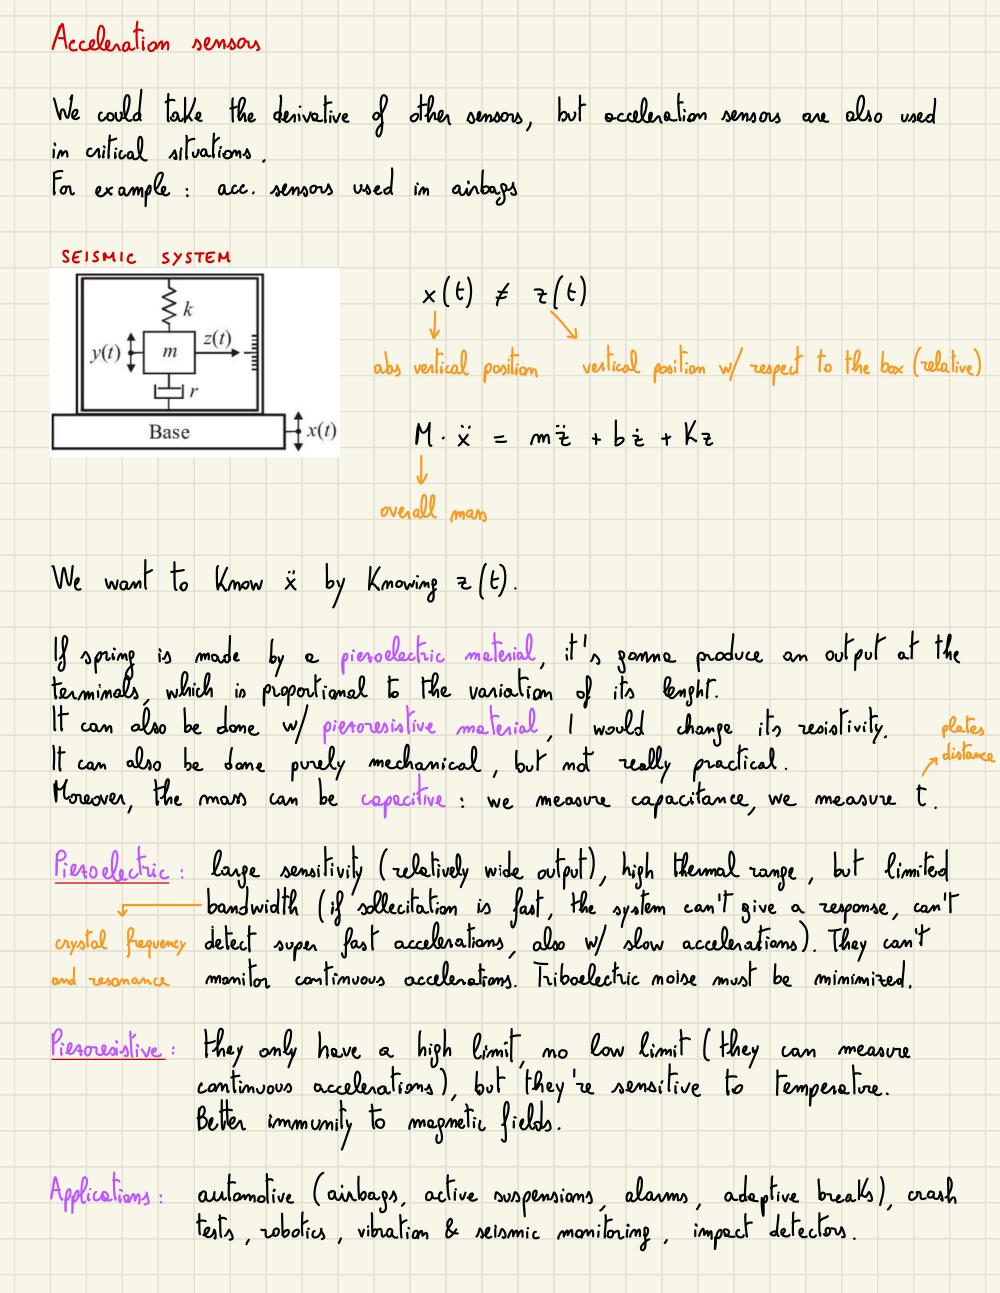 Acceleration sensors
We could take the derivative of other sensors, but acceleration sensors are also used
in critical situations.
For example : acc. sensors used in airbags
SEISMIC SYSTEM
k
y(t)
m
z(t)
r
Base
x(t)
x(t) ≠ z(t)
abs vertical position
vertical position w/ respect to the box (relative)
M · ẍ = mz̈ + bż + Kz
overall mass
We want to Know ẍ by Knowing z(t).
If spring is made by a piezoelectric material, it's gonna produce an output at the
terminals, which is proportional to the variation of its lenght.
It can also be done w/ piezoresistive material, I would change its resistivity.
It can also be done purely mechanical, but not really practical.
Moreover, the mass can be capacitive : we measure capacitance, we measure t.
plates
distance
Piezoelectric : large sensitivity (relatively wide output), high thermal range, but limited
bandwidth (if sollecitation is fast, the system can't give a response, can't
detect super fast accelerations, also w/ slow accelerations). They can't
monitor continuous accelerations. Triboelectric noise must be minimized.
crystal frequency
and resonance
Piezoresistive : they only have a high limit, no low limit (they can measure
continuous accelerations), but they're sensitive to temperature.
Better immunity to magnetic fields.
Applications : automotive (airbags, active suspensions, alarms, adaptive breaks), crash
tests, robotics, vibration & seismic monitoring, impact detectors.